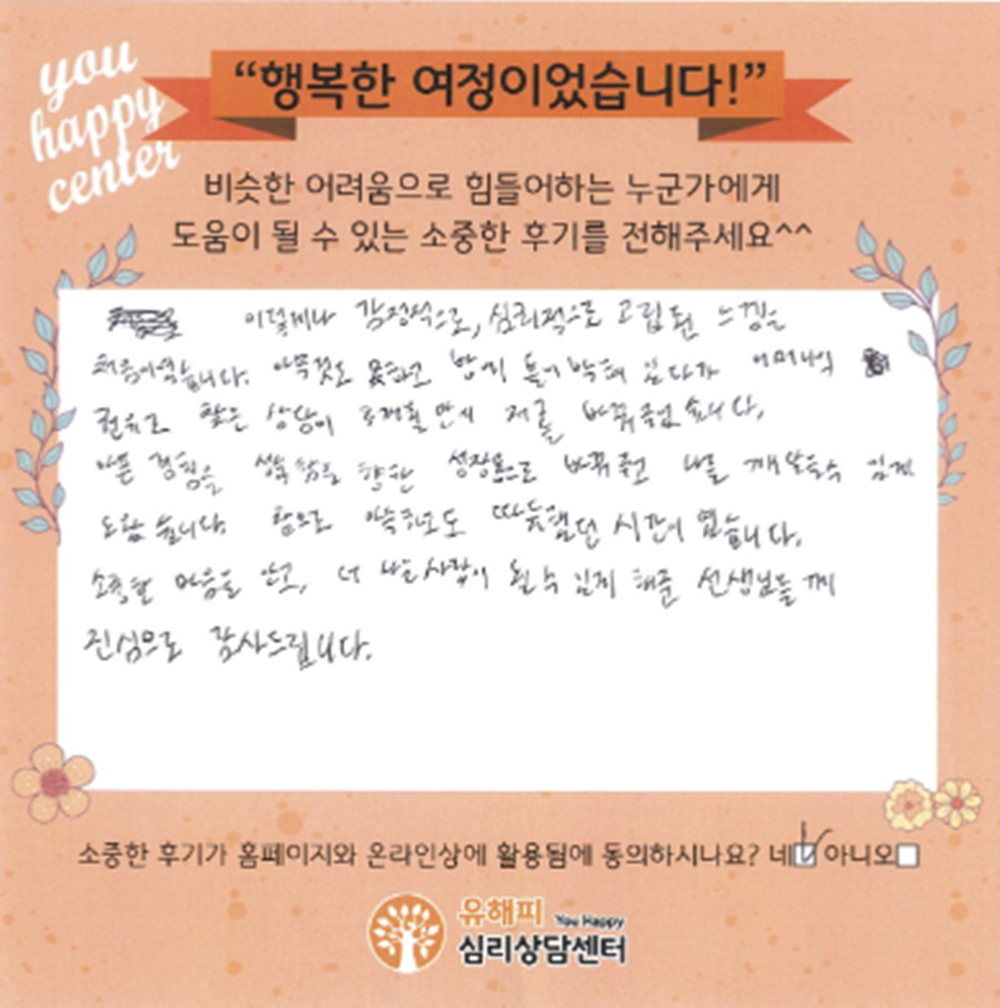 you
happy
center
“행복한 여정이었습니다!”
비슷한 어려움으로 힘들어하는 누군가에게
도움이 될 수 있는 소중한 후기를 전해주세요^^
이렇게나 감정적으로, 심리적으로 고립된 느낌은
처음이었습니다. 아무것도 못하고 방에 틀어박혀 있다가 어머니의
권유로 찾은 상담이 저를 바꿔주었습니다.
아픈 경험을 향한 성장통으로 바꿔주고 나를 깨달을 수 있게
도왔습니다. 참으로 따뜻했던 시간이었습니다.
소중한 마음을 안고, 더 나은 사람이 될 수 있게 해준 선생님들께
진심으로 감사드립니다.
소중한 후기가 홈페이지와 온라인상에 활용됨에 동의하시나요? 네 아니오
유해피 You Happy
심리상담센터